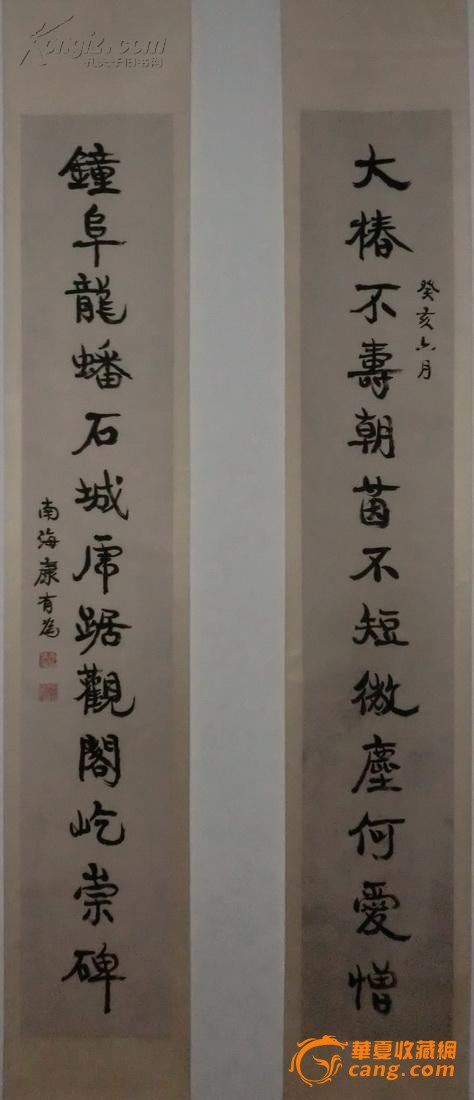 大椿不壽朝菌不短微塵何愛憎
癸亥六月
鐘阜龍蟠石城虎踞觀閣屹崇碑
南海康有為
Kongfz.com
孔夫子旧书网
華夏收藏網
cang.com